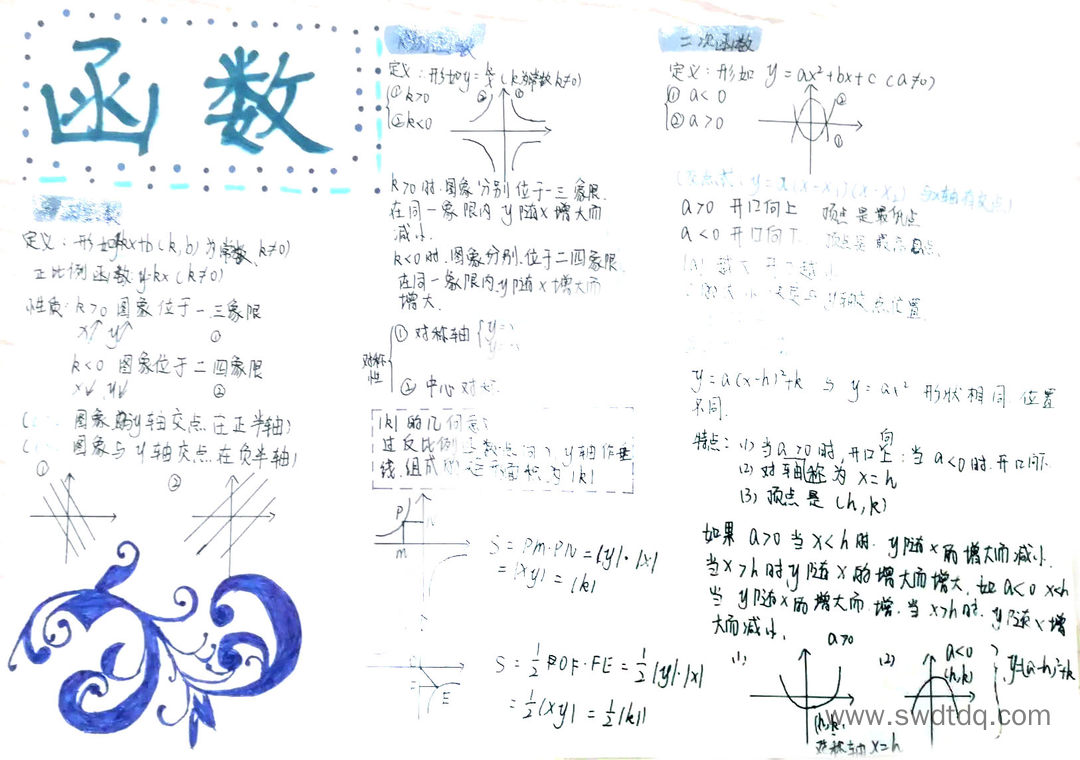 函数
定义:形如y=kx+b(k,b)为常数,k≠0)
正比例函数y=kx(k≠0)
性质:k>0 图象位于一三象限
x↗ y↗ ①
k<0 图象位于二四象限
x↙ y↓ ②
图象与y轴交点在正半轴)
图象与y轴交点在负半轴)
① ②
函数
定义:形如y=k/x(k为常数k≠0)
①k>0
②k<0
② ①
k>0时.图象分别位于一三象限.
在同一象限内 y随x增大而
减小.
k<0时.图象分别.位于二四象限.
在同一象限内.y随x增大而
增大.
对称性
①对称轴{y=
y=
②中心对
|k|的几何意
过反比例函数 y轴作垂
线.组成 面积.为|k|
P N
M
S=PM·PN=|y|·|x|
=|xy|=|k|
F E
S=1/2 POF·FE=1/2|y|·|x|
=1/2|xy|=1/2|k||
二次函数
定义:形如 y=ax²+bx+c (a≠0)
①a<0
②a>0
②
①
y=a(x-x₁)(x-x₂) 与x轴有交点)
a>0 开口向上 顶点是最低点
a<0 开口向下 顶点是最高点
|a| 越大 开口越小
y轴交点位置
y=a(x-h)²+k 与 y=ax² 形状相同.位置
不同.
特点:(1)当a>0时,开口向上:当a<0时.开口向下
(2)对轴称为x=h
(3)顶点是(h,k)
如果 a>0 当x<h时. y随x的增大而减小.
当x>h时y随x的增大而增大.如a<0 x<h
当 y随x的增大而.增.当x>h时.y随x增
大而减小.
(1) a>0
(2) a<0
(h,k)
y=(a-h)²+k
(h,k)
对称轴x=h
www.swdtdq.com